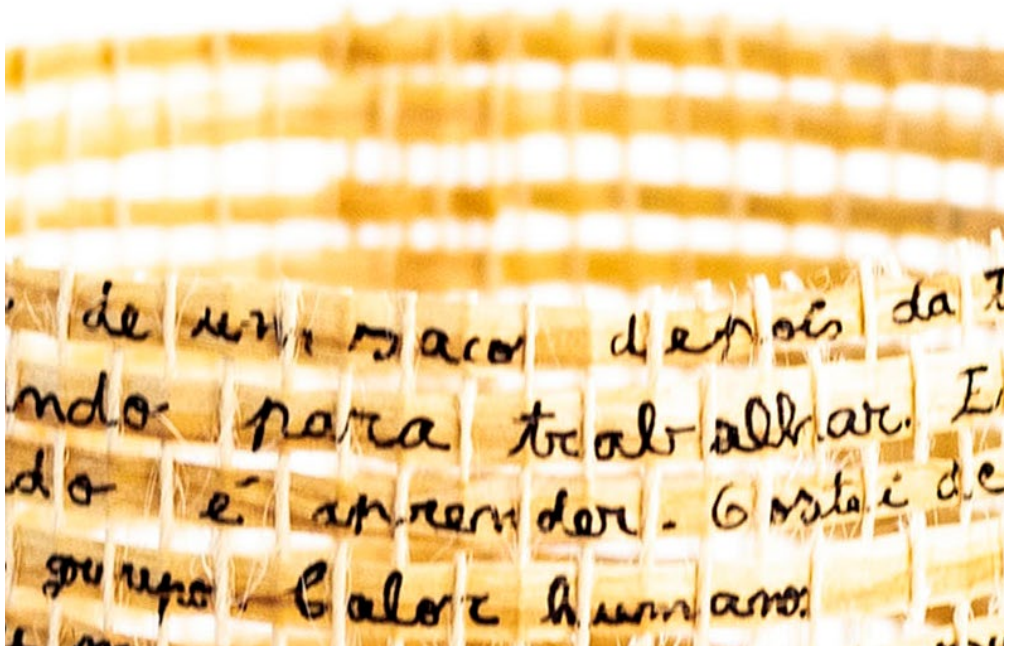 de um saco depois da
ndo para trabalhar. E
do é aprender. Gostei de
grupo Calor humano.